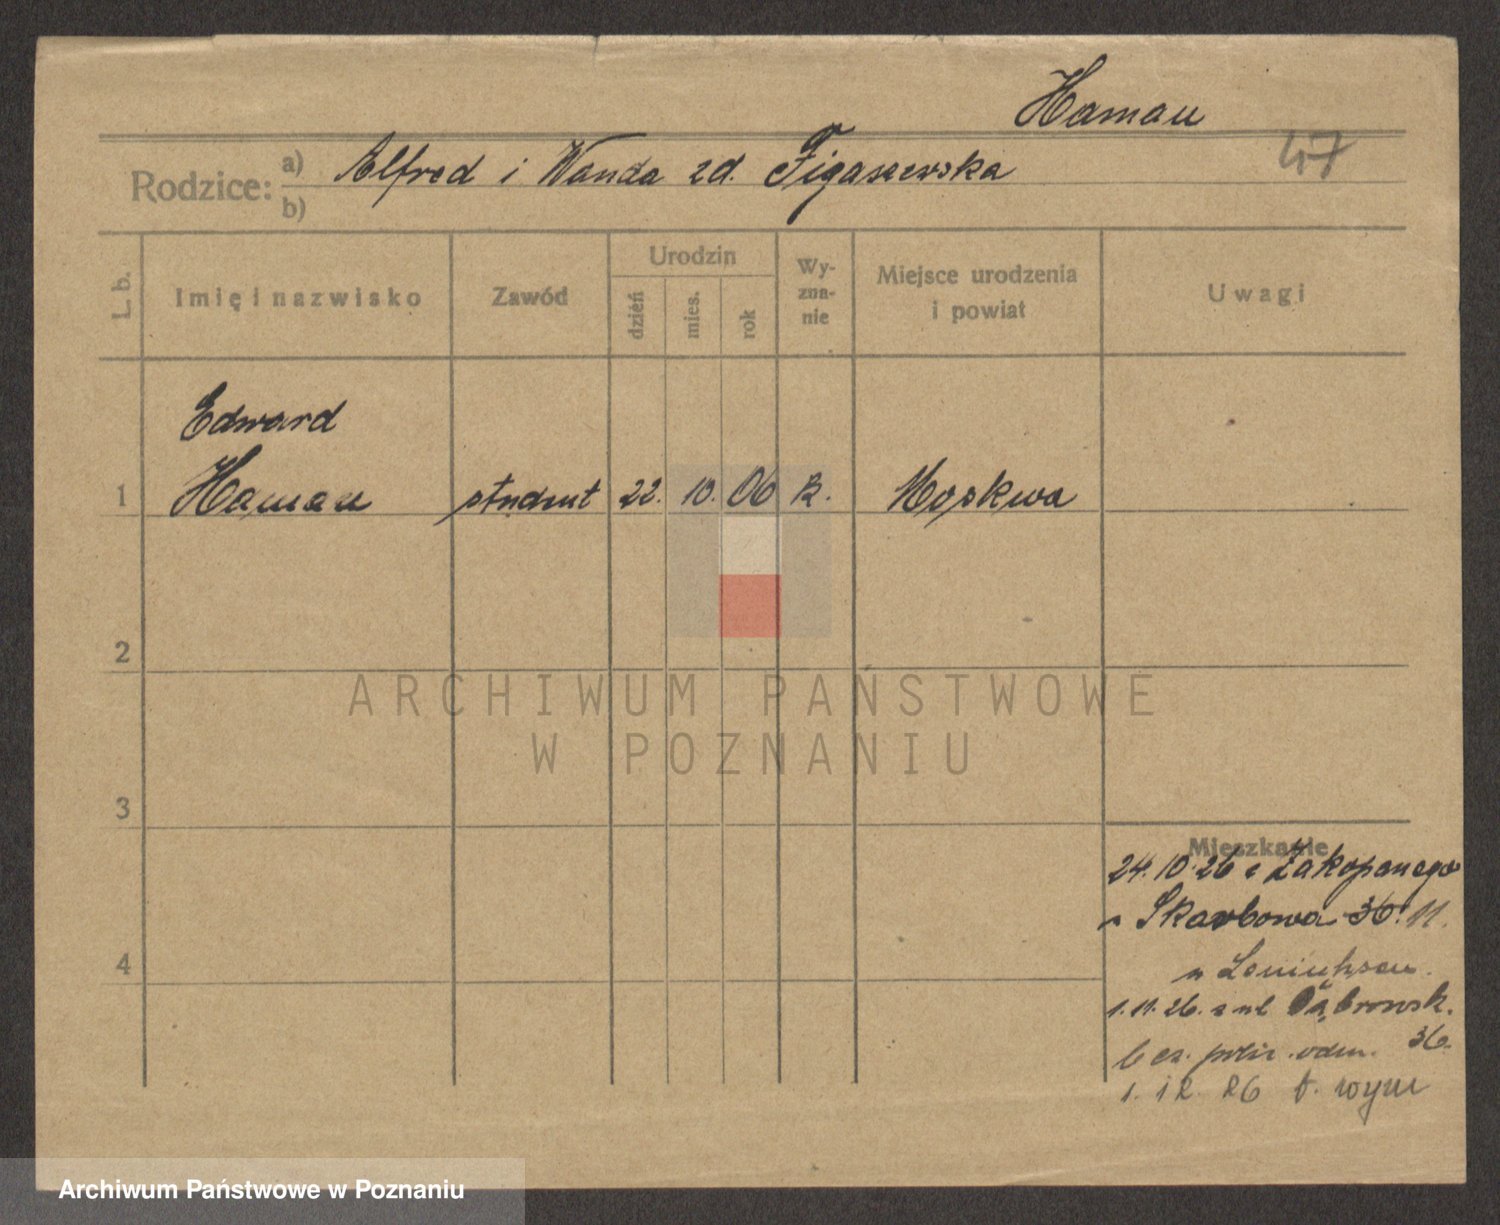 Haman
47
Rodzice: a) Alfred i Wanda zd. Figaszewska
b)
L. b.
Imię i nazwisko
Zawód
Urodzin
dzień
mies.
rok
Wy-
zna-
nie
Miejsce urodzenia
i powiat
Uwagi
Edward
1 Haman student 22. 10. 06 k. Moskwa
2
ARCHIWUM PAŃSTWOWE
W POZNANIU
3
Mieszkanie
24.10.26 z Zakopanego
Skarbowa 36. 11.
4
1.11.26. z ul Dąbrowsk.
36.
bez. polic. odm.
1. 12. 26
Archiwum Państwowe w Poznaniu